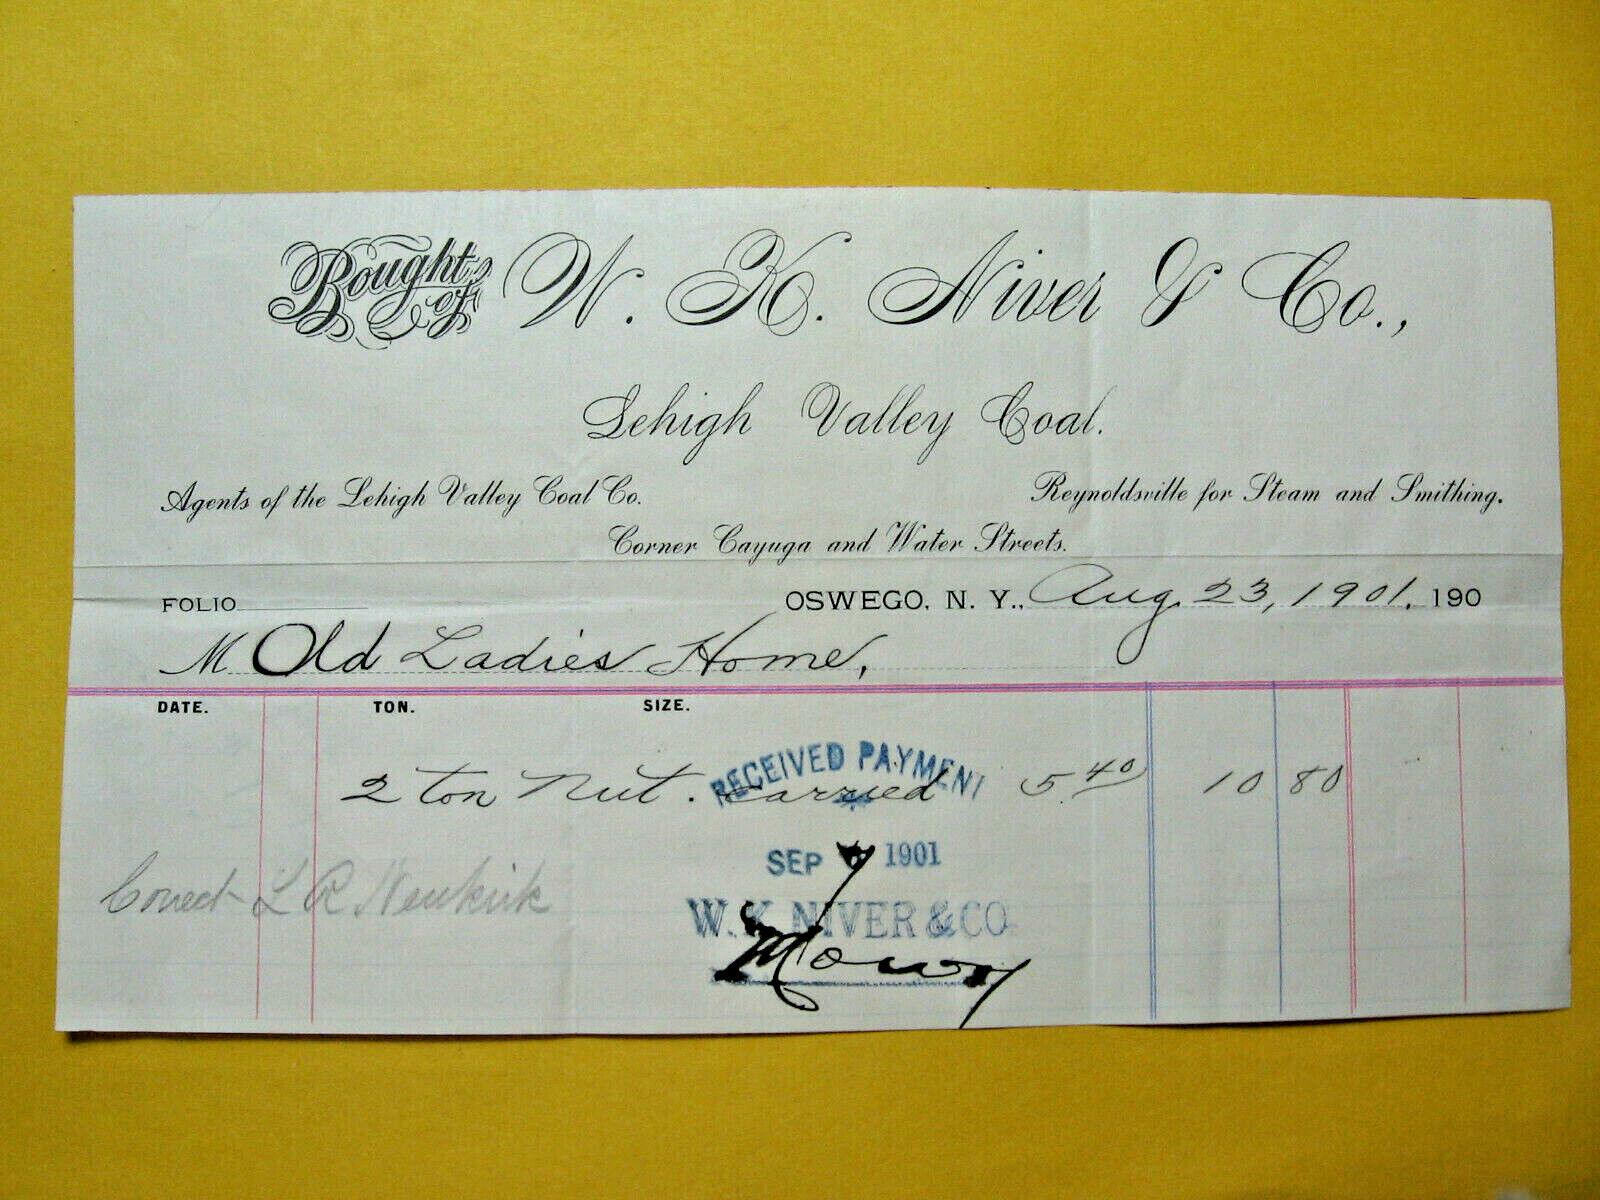 Bought of W. K. Niver & Co.,
Lehigh Valley Coal.
Agents of the Lehigh Valley Coal Co. Reynoldsville for Steam and Smithing.
Corner Cayuga and Water Streets.
FOLIO OSWEGO, N. Y., Aug. 23, 1901. 190
M Old Ladies Home,
DATE. TON. SIZE.
2 ton Nut. carried 5.40 10 80
RECEIVED PAYMENT
SEP 1901
Correct L R Newkirk
W. K. NIVER & CO